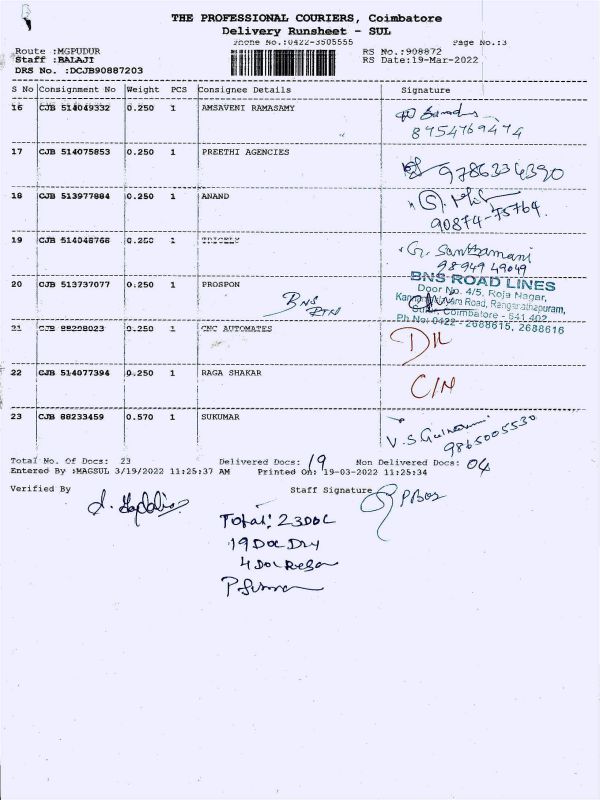 THE PROFESSIONAL COURIERS, Coimbatore
Delivery Runsheet - SUL
Phone No.:0422-3505555 Page No.:3
Route :MGPUDUR RS No.:908872
Staff :BALAJI RS Date:19-Mar-2022
DRS No. :DCJB90887203
S No Consignment No Weight PCS Consignee Details Signature
16 CJB 514049332 0.250 1 AMSAVENI RAMASAMY
8754769474
17 CJB 514075853 0.250 1 PREETHI AGENCIES 9786234390
18 CJB 513977884 0.250 1 ANAND
90874-75764.
19 CJB 514048768 0.250 1 G. Santhamani
98949 49049
20 CJB 513737077 0.250 1 PROSPON
BNS RTN
BNS ROAD LINES
Door No. 4/5, Roja Nagar,
Road, Rangarathapuram,
Sulur, Coimbatore - 641 402.
Ph No: 0422 - 2688615, 2688616
21 CJB 88298023 0.250 1 CNC AUTOMATES D/L
22 CJB 514077394 0.250 1 RAGA SHAKAR C/N
23 CJB 88233459 0.570 1 SUKUMAR V.S
9865005530
Total No. Of Docs: 23 Delivered Docs: 19 Non Delivered Docs: 04
Entered By :MAGSUL 3/19/2022 11:25:37 AM Printed On: 19-03-2022 11:25:34
Verified By Staff Signature
Total: 23 Doc
19 Doc Dry
4 Doc